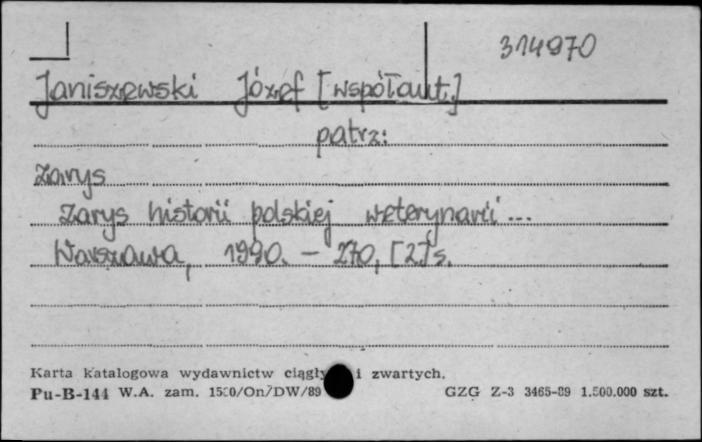 314970
Janiszewski Józef [współaut.]
patrz:
Zarys
Zarys historii polskiej weterynarii...
Warszawa, 1990. - 270, [2] s.
Karta katalogowa wydawnictw i zwartych.
Pu-B-144 W.A. zam. /On/DW/89 GZG Z-3 3465-89 1.500.000 szt.